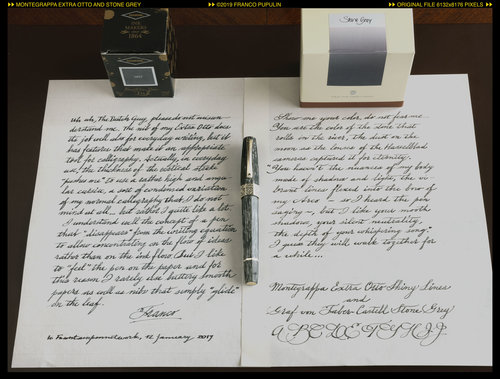 MONTEGRAPPA EXTRA OTTO AND STONE GREY
©2019 FRANCO PUPULIN
ORIGINAL FILE 6132x8176 PIXELS
INK
MAKERS
1864
Stone Grey
Uh uh, The Dutch Guy, please do not misun-
derstand me. The nib of my Extra Otto does
its job well also for everyday writing, but it
has features that make it an appropriate
tool for calligraphy. Actually, in everyday
use, the thickness of the vertical stroke
"pushes me" to write rather high and angu-
lar cursive, a sort of condensed variation
of my normal calligraphy that I do not
mind at all, but rather I quite like a lot.
I understand well the concept of a pen
that "disappears" from the writing equation
to allow concentrating on the flow of ideas
rather than on the ink flow. But I like
to "feel" the pen on the paper and for
this reason I rarely use buttery smooth
papers as well as nibs that simply "glide"
on the leaf.
Franco
to Fountainpennetwork, 12 January, 2019
Show me your color, do not fear me.
You are the color of the stone that
rolls in the river, the dust on the
moon as the lenses of the Hasselblad
cameras captured it for eternity.
"You haven't the nuances of my body
made of shadows and light, the vi-
brant lines fixed into the bow of
my Arco – so I heard the pen
saying – but I like your smooth
shadows, your silent neutrality
the depth of your whispering song".
I guess they will walk together for
a while...
Montegrappa Extra Otto Shiny Lines
and
Graf von Faber-Castell Stone Grey